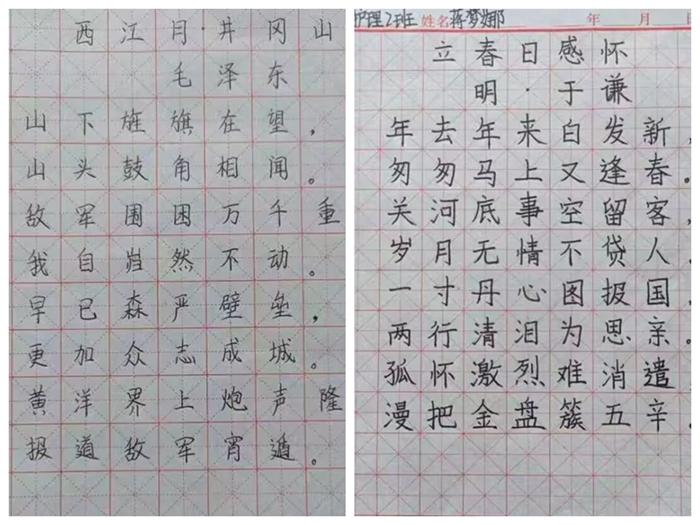 西江月·井冈山
毛泽东
山下旌旗在望，
山头鼓角相闻。
敌军围困万千重
我自岿然不动。
早已森严壁垒，
更加众志成城。
黄洋界上炮声隆
报道敌军宵遁。
护理2班 姓名 蒋梦娜 年 月 日
立春日感怀
明·于谦
年去年来白发新，
匆匆马上又逢春。
关河底事空留客，
岁月无情不贷人。
一寸丹心图报国，
两行清泪为思亲。
孤怀激烈难消遣
漫把金盘簇五辛。